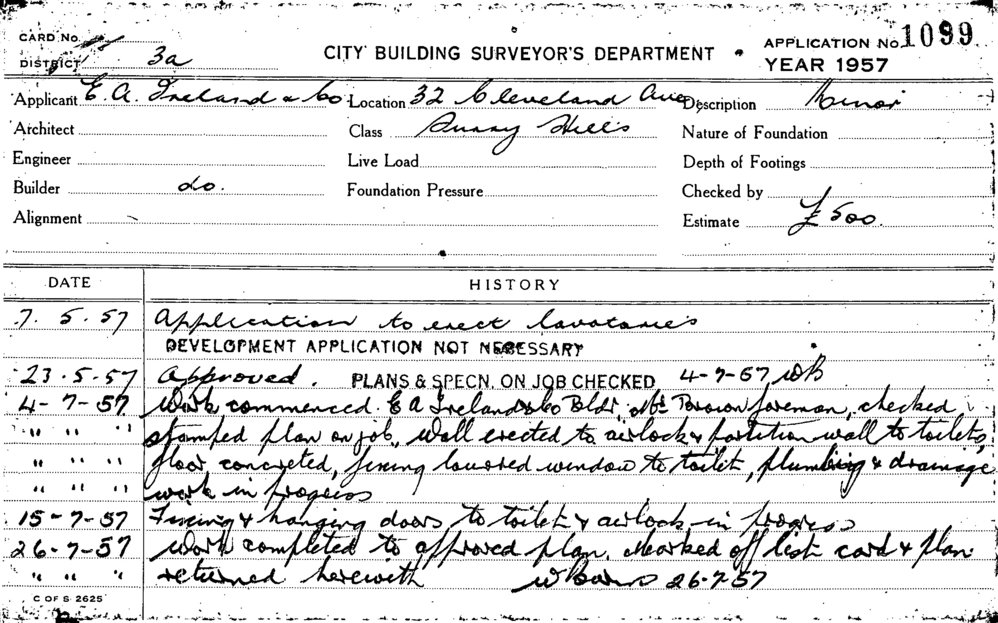 CARD No.
DISTRICT 3a
CITY BUILDING SURVEYOR'S DEPARTMENT
APPLICATION No. 1099
YEAR 1957
Applicant E. A. Ireland & Co Location 32 Cleveland Ave Description Minor
Architect Class Surry Hills Nature of Foundation
Engineer Live Load Depth of Footings
Builder do. Foundation Pressure Checked by
Alignment Estimate £500.
DATE HISTORY
7. 5. 57 Application to erect lavatories
DEVELOPMENT APPLICATION NOT NECESSARY
23-5-57 Approved. PLANS & SPECN. ON JOB CHECKED 4-7-57 WB
4-7-57 Work commenced. E A Ireland & Co Bldr, Mr Brown foreman, checked
" " " stamped plan on job, wall erected to airlock & partition wall to toilets,
" " " floor concreted, fixing louvred window to toilet, plumbing & drainage
" " " work in progress
15-7-57 Fixing & hanging doors to toilet & airlock in progress
26-7-57 Work completed to approved plan. Marked off list card & plan
" " " returned herewith 26-7-57
C OF S 2625